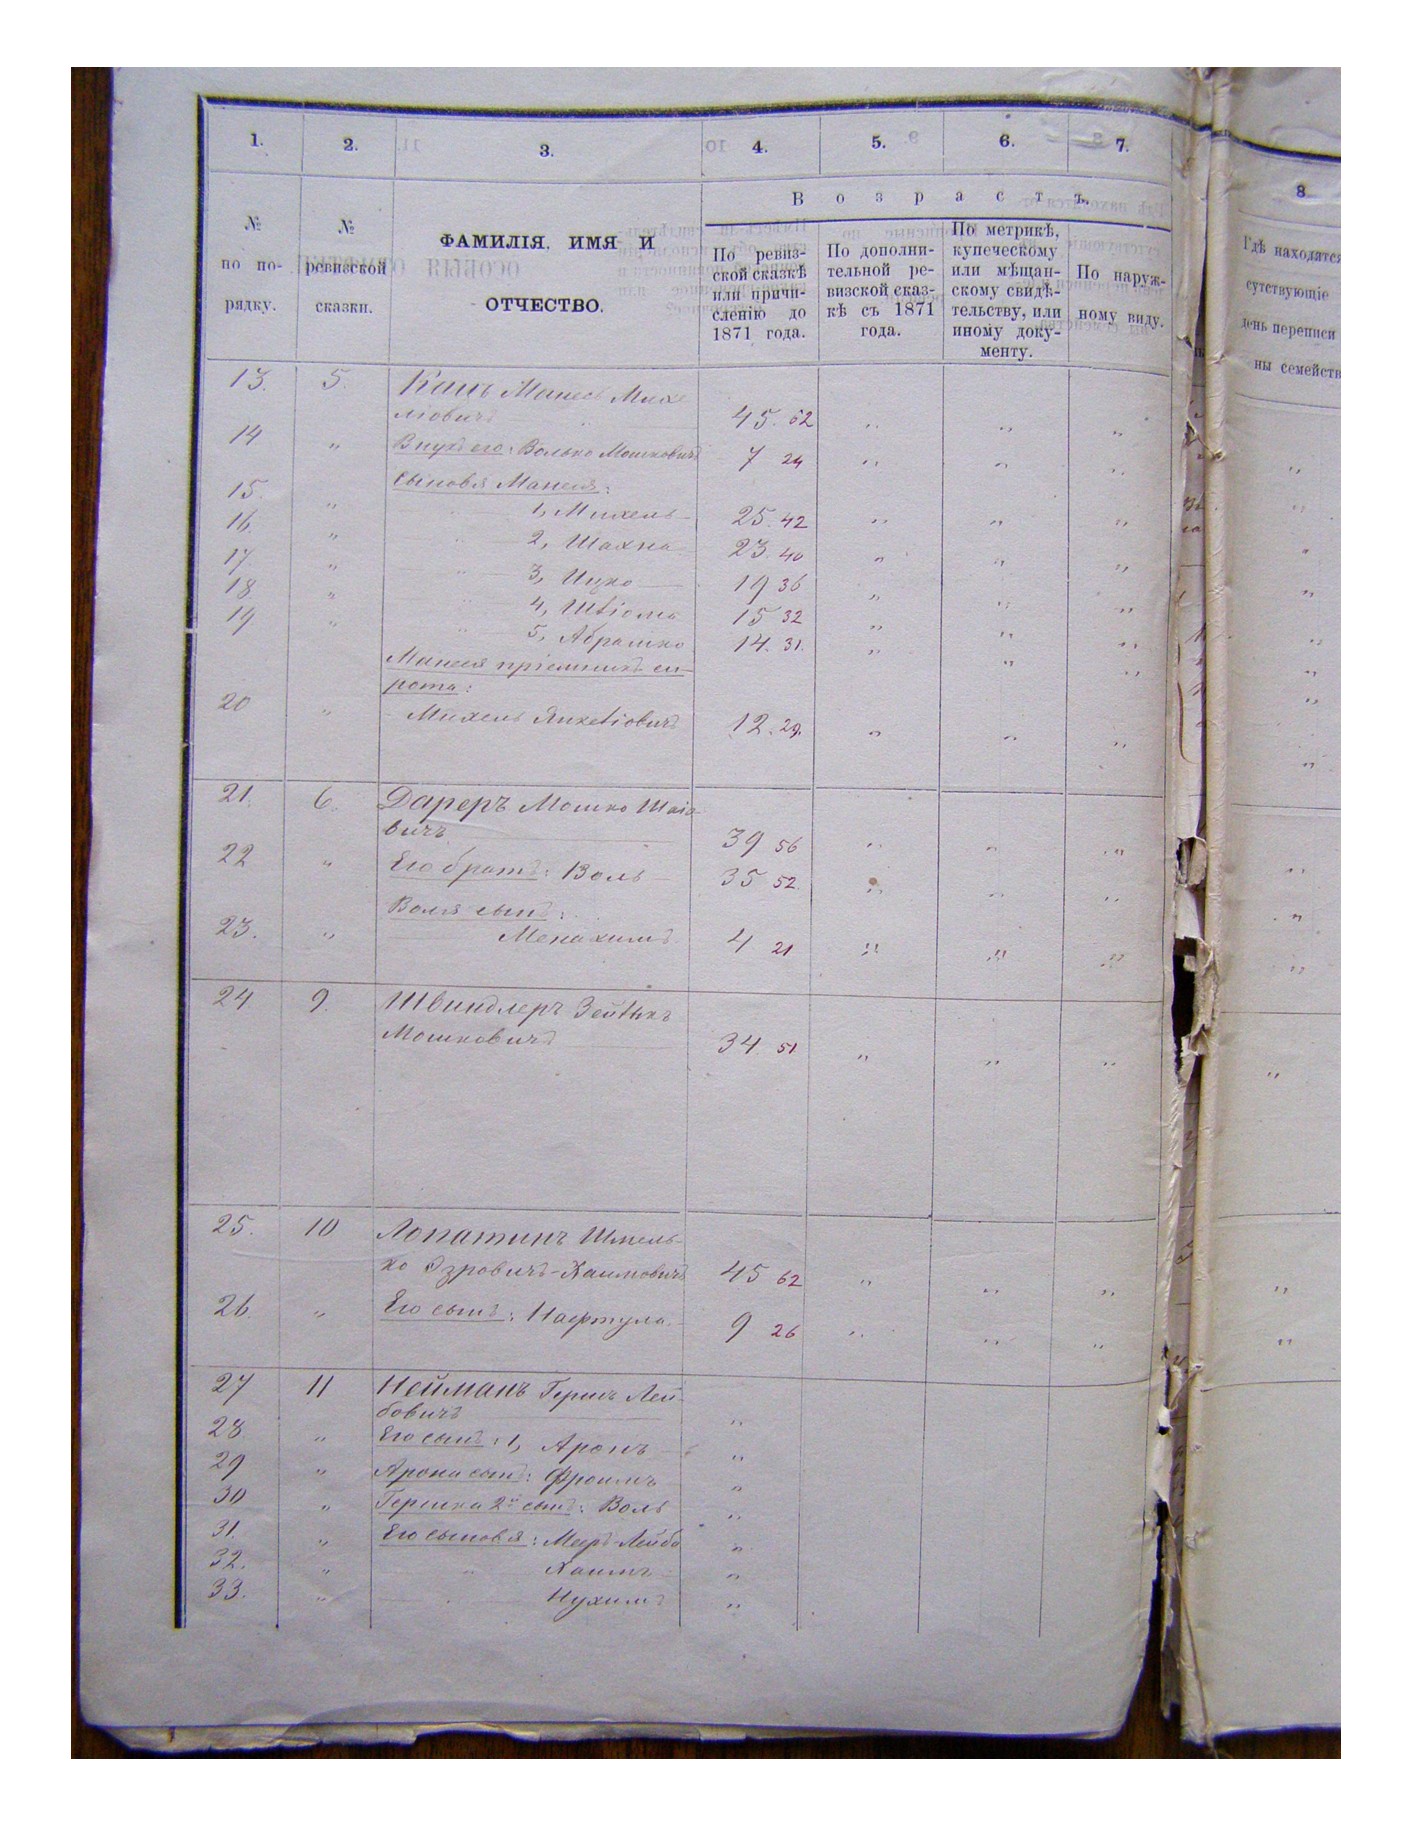 1. 2. 3. 4. 5. 6. 7.
8
Возрастъ.
№ по по-рядку.
№ ревизской сказки.
ФАМИЛІЯ, ИМЯ И
ОТЧЕСТВО.
По ревиз-
ской сказкѣ
или причи-
сленію до
1871 года.
По дополни-
тельной ре-
визской сказ-
кѣ съ 1871
года.
По метрикѣ,
купеческому
или мѣщан-
скому свидѣ-
тельству, или
иному доку-
менту.
По наруж-
ному виду.
Гдѣ находятся
сутствующіе
день переписи
ны семейств
13. 5. Кацъ Манесъ Михе
ліовичъ 45. 62 " " "
14 " Внукъ его: Волько Мошковичъ 7 24 " " "
Сыновья Манеля:
15. " 1, Михель 25. 42 " " "
16. " 2, Шахна 23. 40 " " "
17 " 3, Ицко 19 36 " " "
18 " 4, 15 32 " " "
19 " 5, Абрамко 14. 31. " " "
Манеля пріемникъ си-
рота:
20 " Михель 12. 29. " " "
21. 6. Дареръ Мошко Шаіо-
вичъ 39 56 " " "
22 " Его братъ: Воль 35 52. " " "
Воля сынъ:
23. " Менахимъ 4 21 " " "
24 9. Швиндлеръ
Мошковичъ 34. 51 " " "
25. 10 Лопатинъ Шмель-
ко Озровичъ-Хаимовичъ 45 62 " " "
26. " Его сынъ: Нафтула 9 26 " " "
27 11 Нейманъ Гершъ Лей-
бовичъ "
28 " Его сынъ: 1, Аронъ "
29 " Арона сынъ: Фроимъ "
30 " Гершка 2й сынъ: Воль "
31. " Его сыновья: Меръ-Лейба "
32. " " Хаимъ "
33. " " Нухимъ "